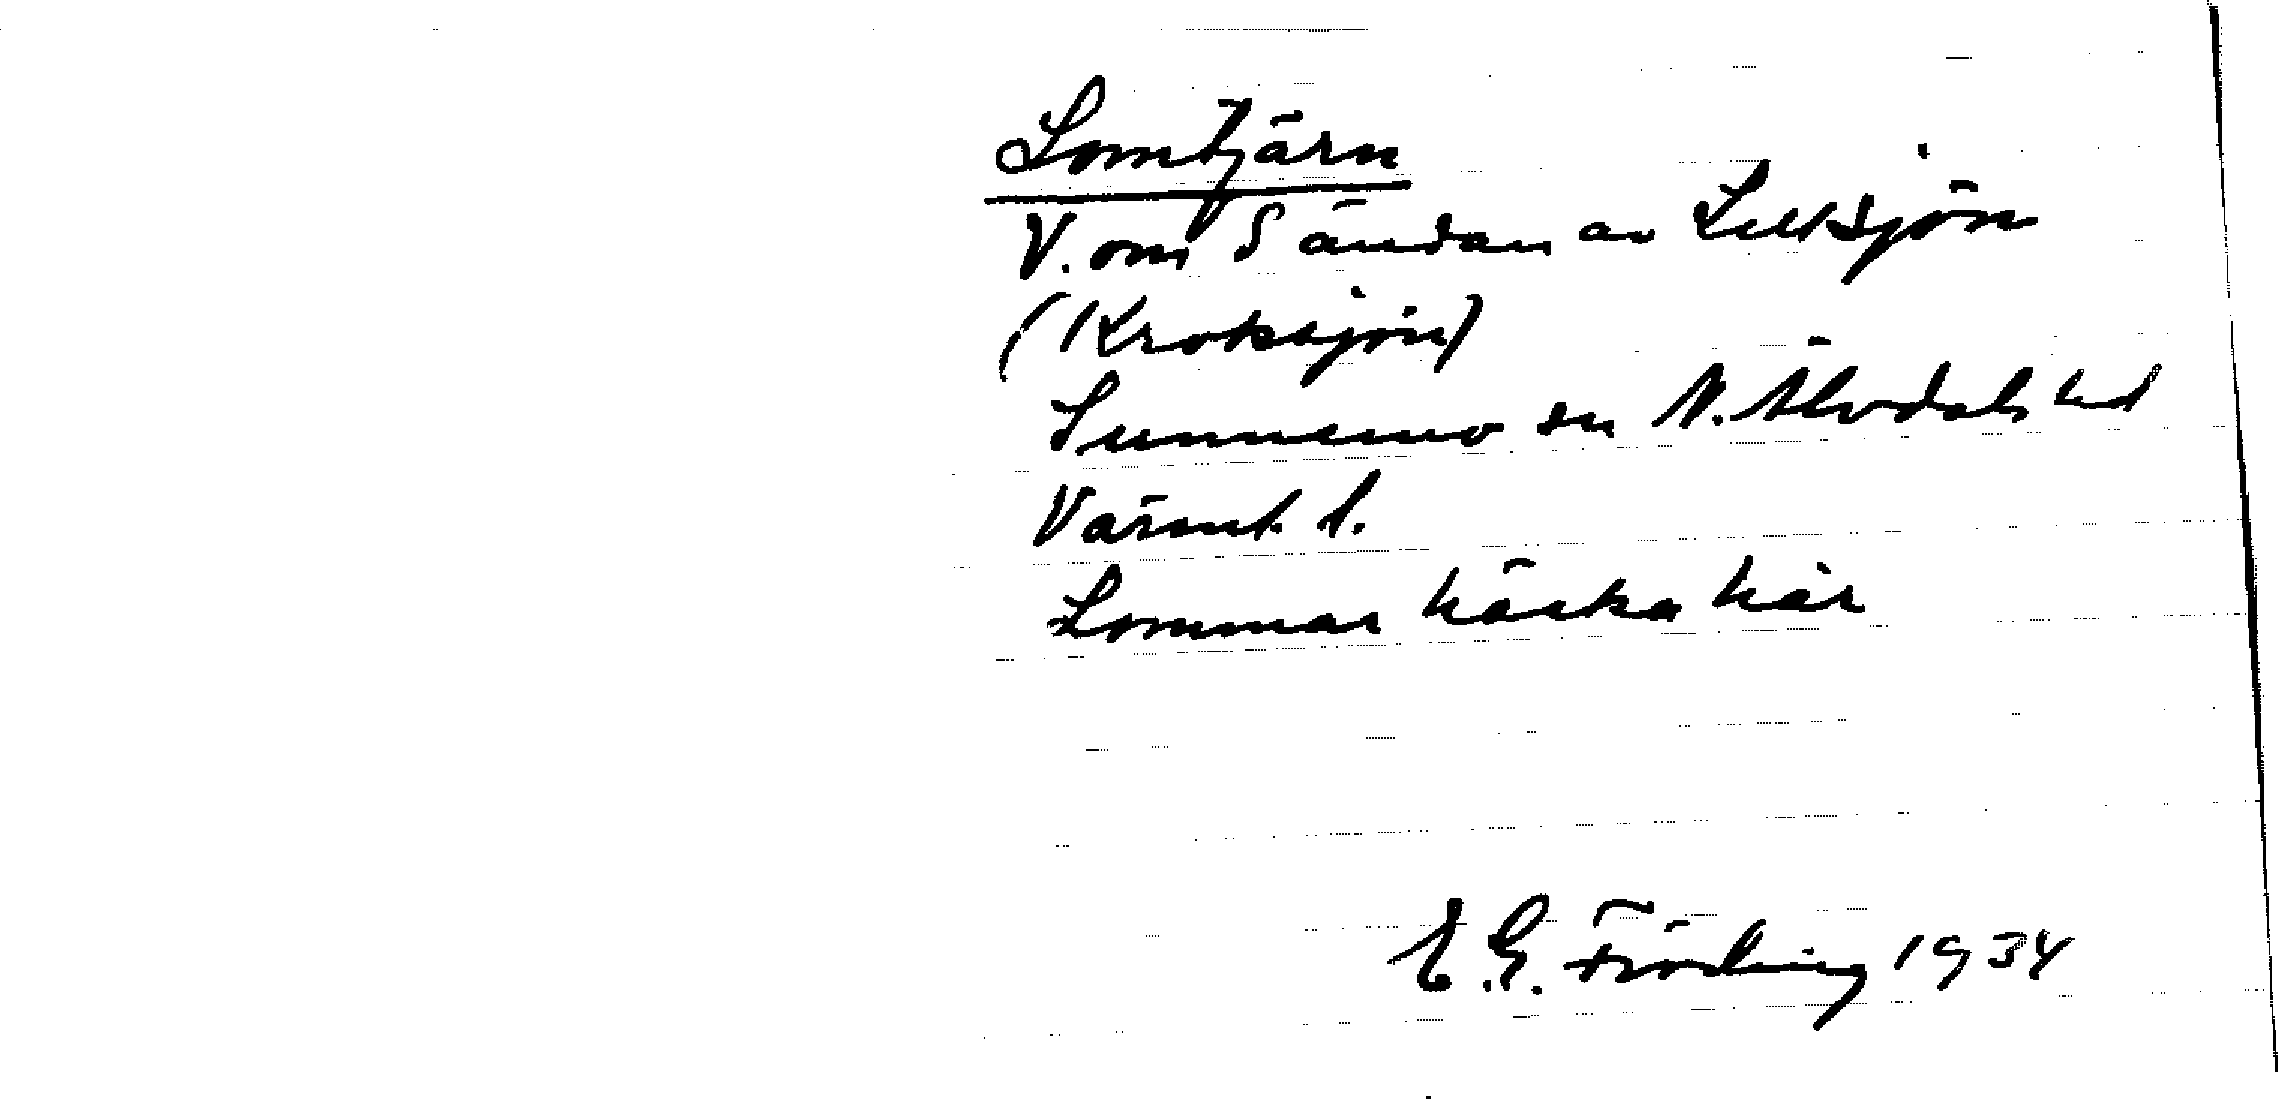 Lomtjärn
V. om S ändan av Lillsjön
(Kroksjön)
Sunnemo sn N. Älvdals hd
Värml. l.
Lommar häcka här
E. G. Fröding 1934